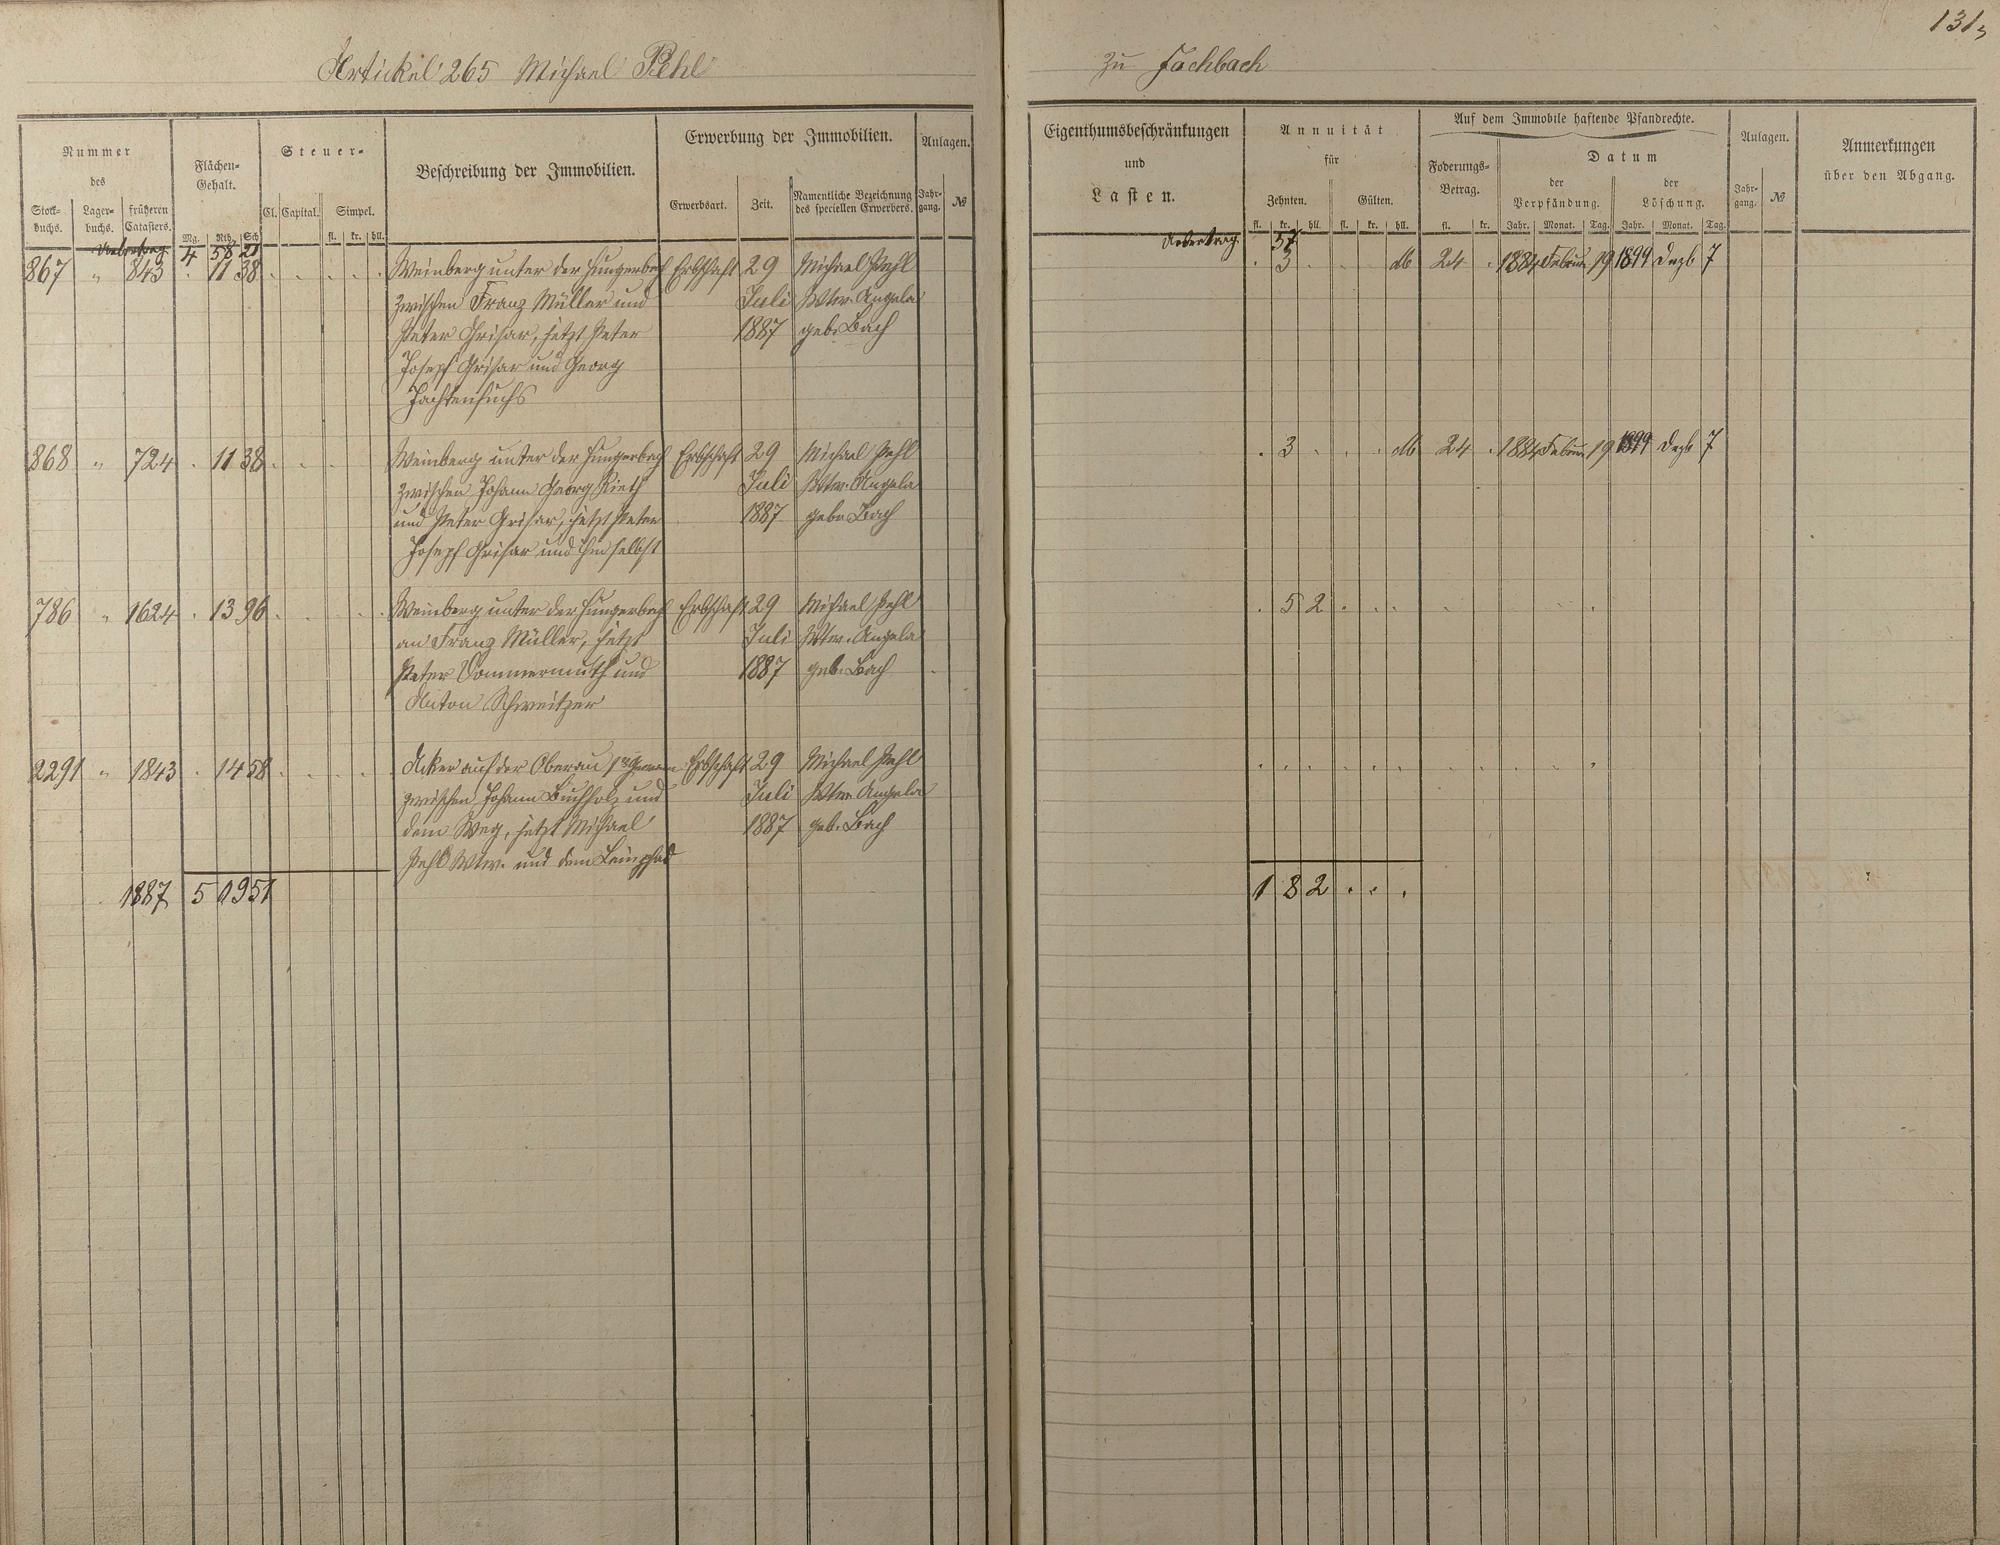 Artickel 265 Michael Pehl
zu Fachbach
131
Nummer
des
Stock-buchs. Lager-buchs. früheren Catasters.
Flächen-Gehalt.
Mg. Rth. Sch
Steuer-
Cl. Capital. Simpel.
fl. kr. hll.
Beschreibung der Immobilien.
Erwerbung der Immobilien.
Erwerbsart. Zeit. Namentliche Bezeichnung des speciellen Erwerbers.
Anlagen.
Jahr-gang. №
Eigenthumsbeschränkungen
und
Lasten.
Annuität
für
Zehnten. Gülten.
fl. kr. hll. fl. kr. hll.
Auf dem Immobile haftende Pfandrechte.
Foderungs-Betrag.
fl. kr.
Datum
der Verpfändung. der Löschung.
Jahr. Monat. Tag. Jahr. Monat. Tag.
Anlagen.
Jahr-gang. №
Anmerkungen
über den Abgang.
Uebertrag 4 58 21 Uebertrag 57
867 " 843 . 11 38 Weinberg unter der Hungerbach Erbschaft 29 Michael Pehl . 3 . . . db 24 . 1884 Februar 19 1899 Dezb 7
zwischen Franz Müller und Juli Wtw. Angela
Peter Grisar, jetzt Peter 1887 geb. Bach
Joseph Grisar und Georg
868 " 724 . 11 38 Weinberg unter der Hungerbach Erbschaft 29 Michael Pehl . 3 . . . db 24 . 1884 Februar 19 1899 Dezb 7
zwischen Johann Georg Rieth Juli Wtw. Angela
und Peter Grisar, jetzt Peter 1887 geb. Bach
Joseph Grisar und ihm selbst
786 " 1624 . 13 96 Weinberg unter der Hungerbach Erbschaft 29 Michael Pehl . 5 2
an Franz Müller, jetzt Juli Wtw. Angela
Peter Sommermuth und 1887 geb. Bach
Anton Schweitzer
2291 " 1843 . 14 58 Acker auf der Oberau 1r Gewann Erbschaft 29 Michael Pehl
zwischen Johann Buchholz und Juli Wtw. Angela
dem Weg, jetzt Michael 1887 geb. Bach
Pehl Wtw. und dem Leinpfad
1887 5 19 51 1 8 2